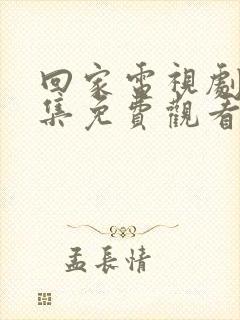 回家電視劇
集免費觀看
孟長情